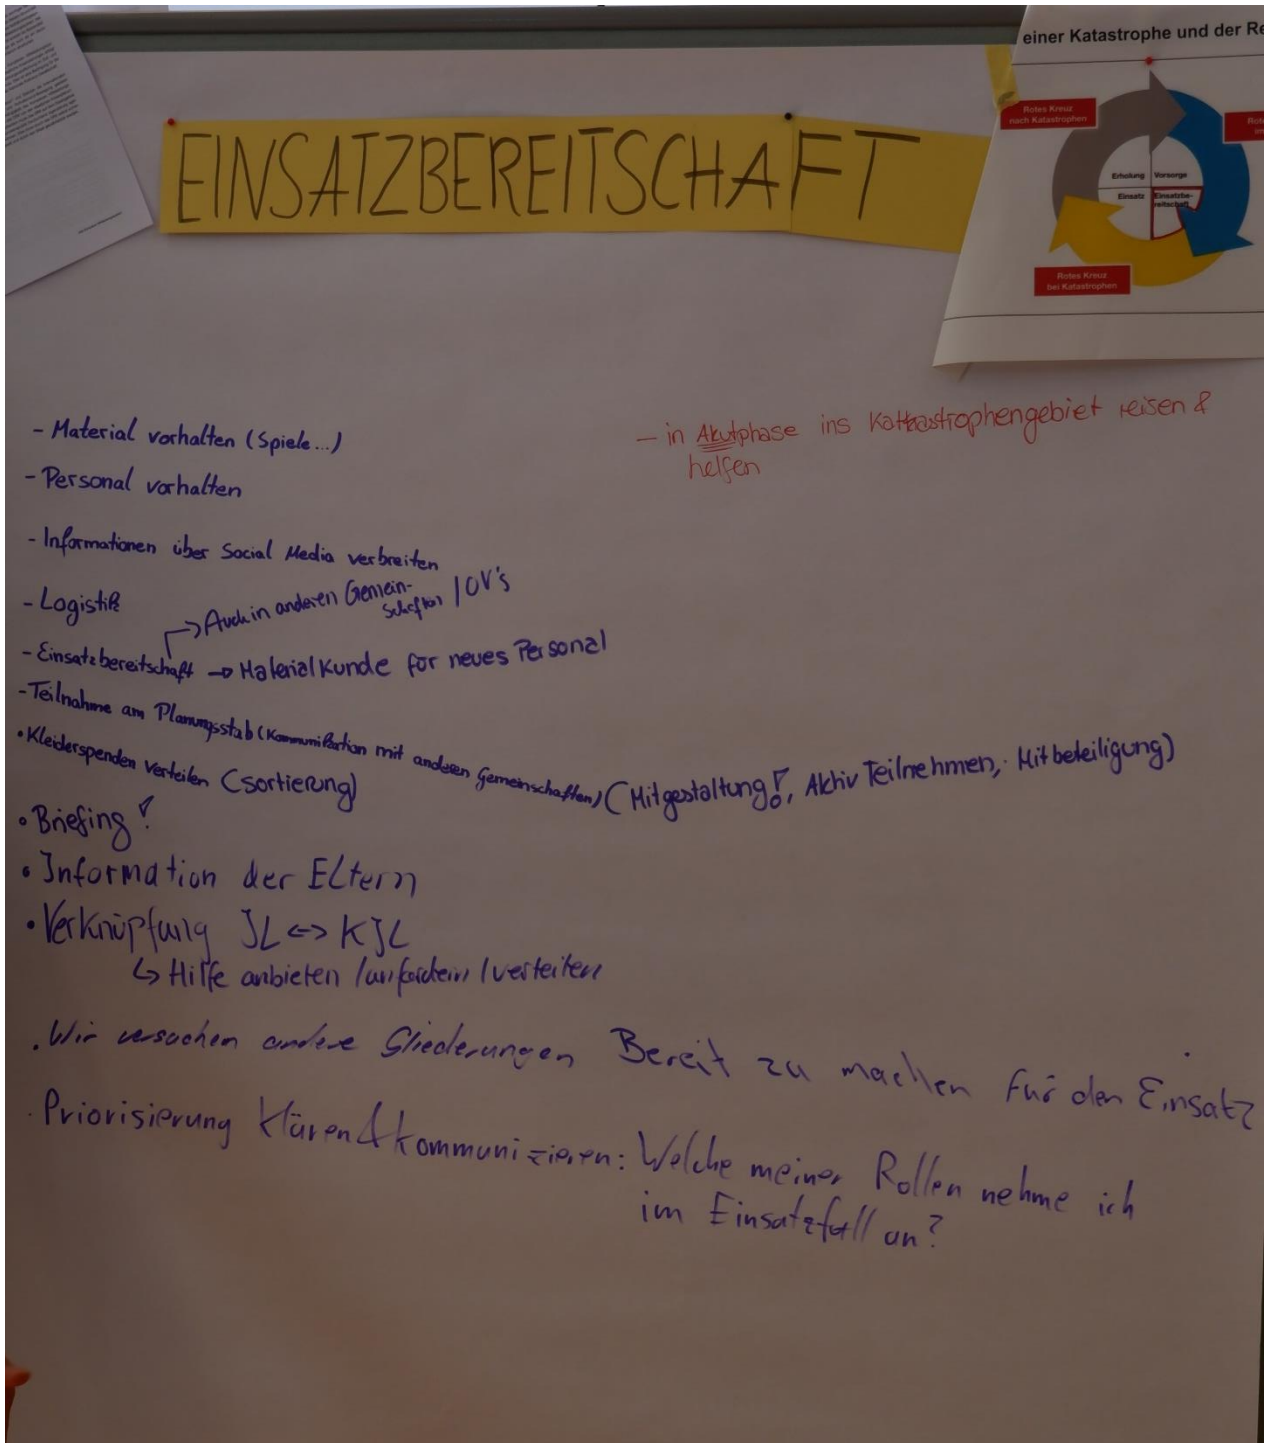 einer Katastrophe und der Re
Rotes Kreuz
nach Katastrophen
Erholung
Vorsorge
Einsatz
Einsatzbe-
reitschaft
Rotes Kreuz
bei Katastrophen
EINSATZBEREITSCHAFT
- Material vorhalten (Spiele...)
- Personal vorhalten
- Informationen über Social Media verbreiten
- Logistik
→ Auch in anderen Gemein-
schaften / OV's
- Einsatzbereitschaft → Materialkunde für neues Personal
- Teilnahme am Planungsstab (Kommunikation mit anderen Gemeinschaften) (Mitgestaltung!, Aktiv Teilnehmen, Mitbeteiligung)
• Kleiderspenden verteilen (Sortierung)
• Briefing!
• Information der Eltern
• Verknüpfung JL ↔ KJL
↳ Hilfe anbieten / anfordern / verteilen
. Wir versuchen andere Gliederungen Bereit zu machen für den Einsatz
. Priorisierung klären & kommunizieren: Welche meiner Rollen nehme ich
im Einsatzfall an?
- in Akutphase ins Kattastrophengebiet reisen &
helfen